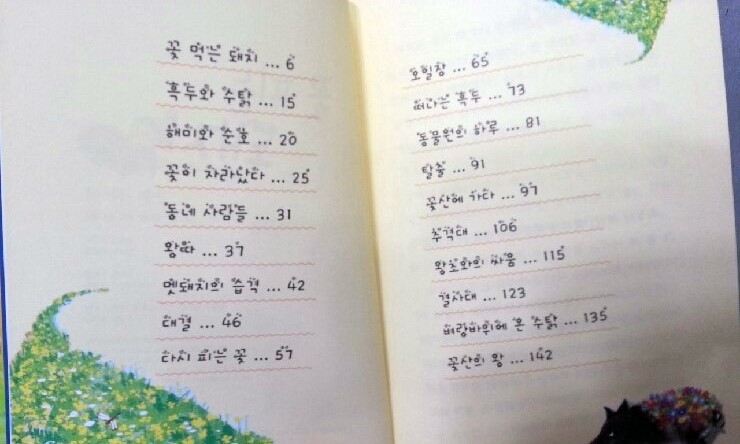 꽃 먹는 돼지 ... 6
흑두와 수탉 ... 15
해미와 순호 ... 20
꽃이 자라났다 ... 25
동네 사람들 ... 31
왕따 ... 37
멧돼지의 습격 ... 42
대결 ... 46
다시 피는 꽃 ... 57
오일장 ... 65
떠나는 흑두 ... 73
동물원의 하루 ... 81
탈출 ... 91
꽃산에 가다 ... 97
추격대 ... 106
왕초와의 싸움 ... 115
결사대 ... 123
벼랑바위에 온 수탉 ... 135
꽃산의 왕 ... 142